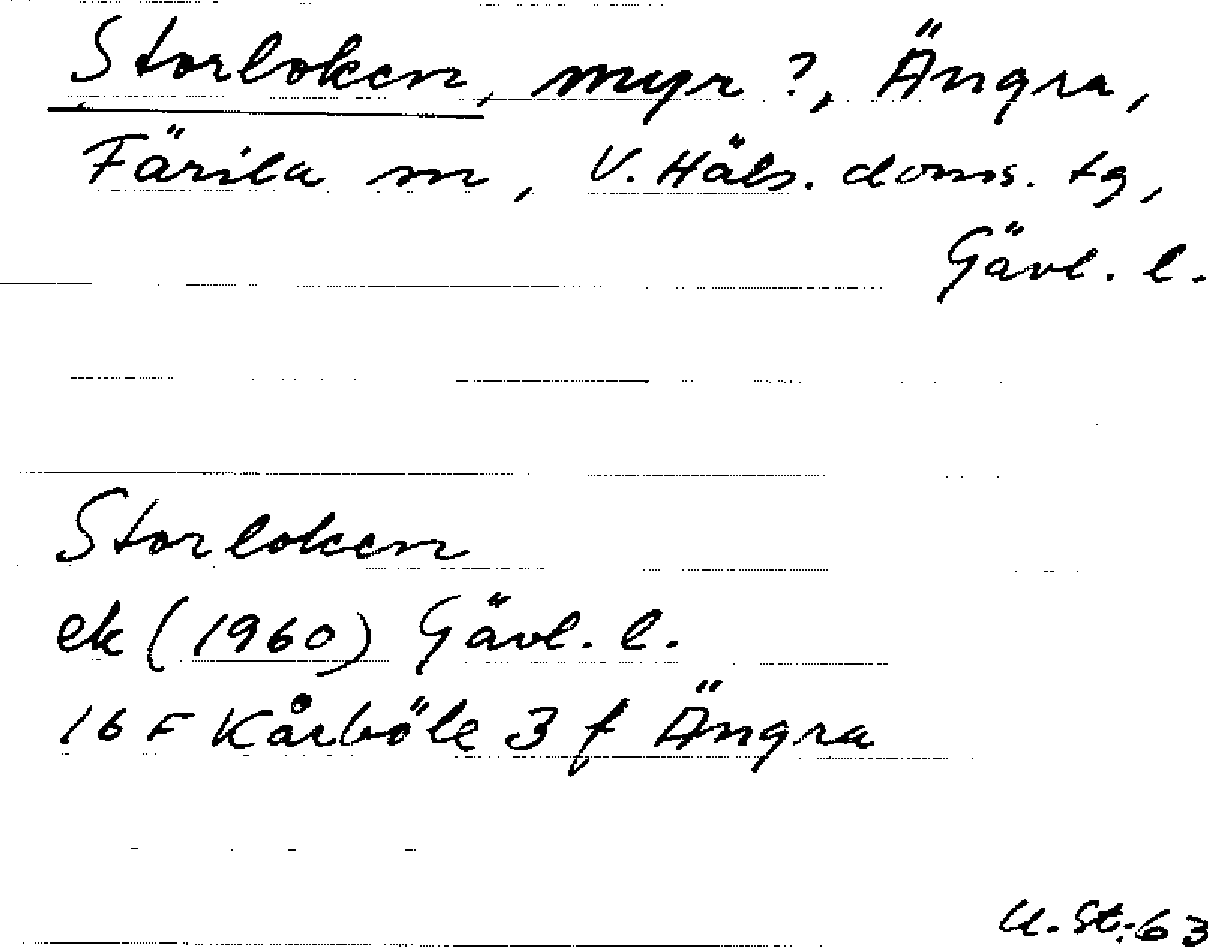 Storloken, myr ?, Ängra,
Färila sn, V. Häls. doms. tg,
Gävl. l.
Storloken
ek (1960) Gävl. l.
16 F Kårböle 3 f Ängra
U. St. 63